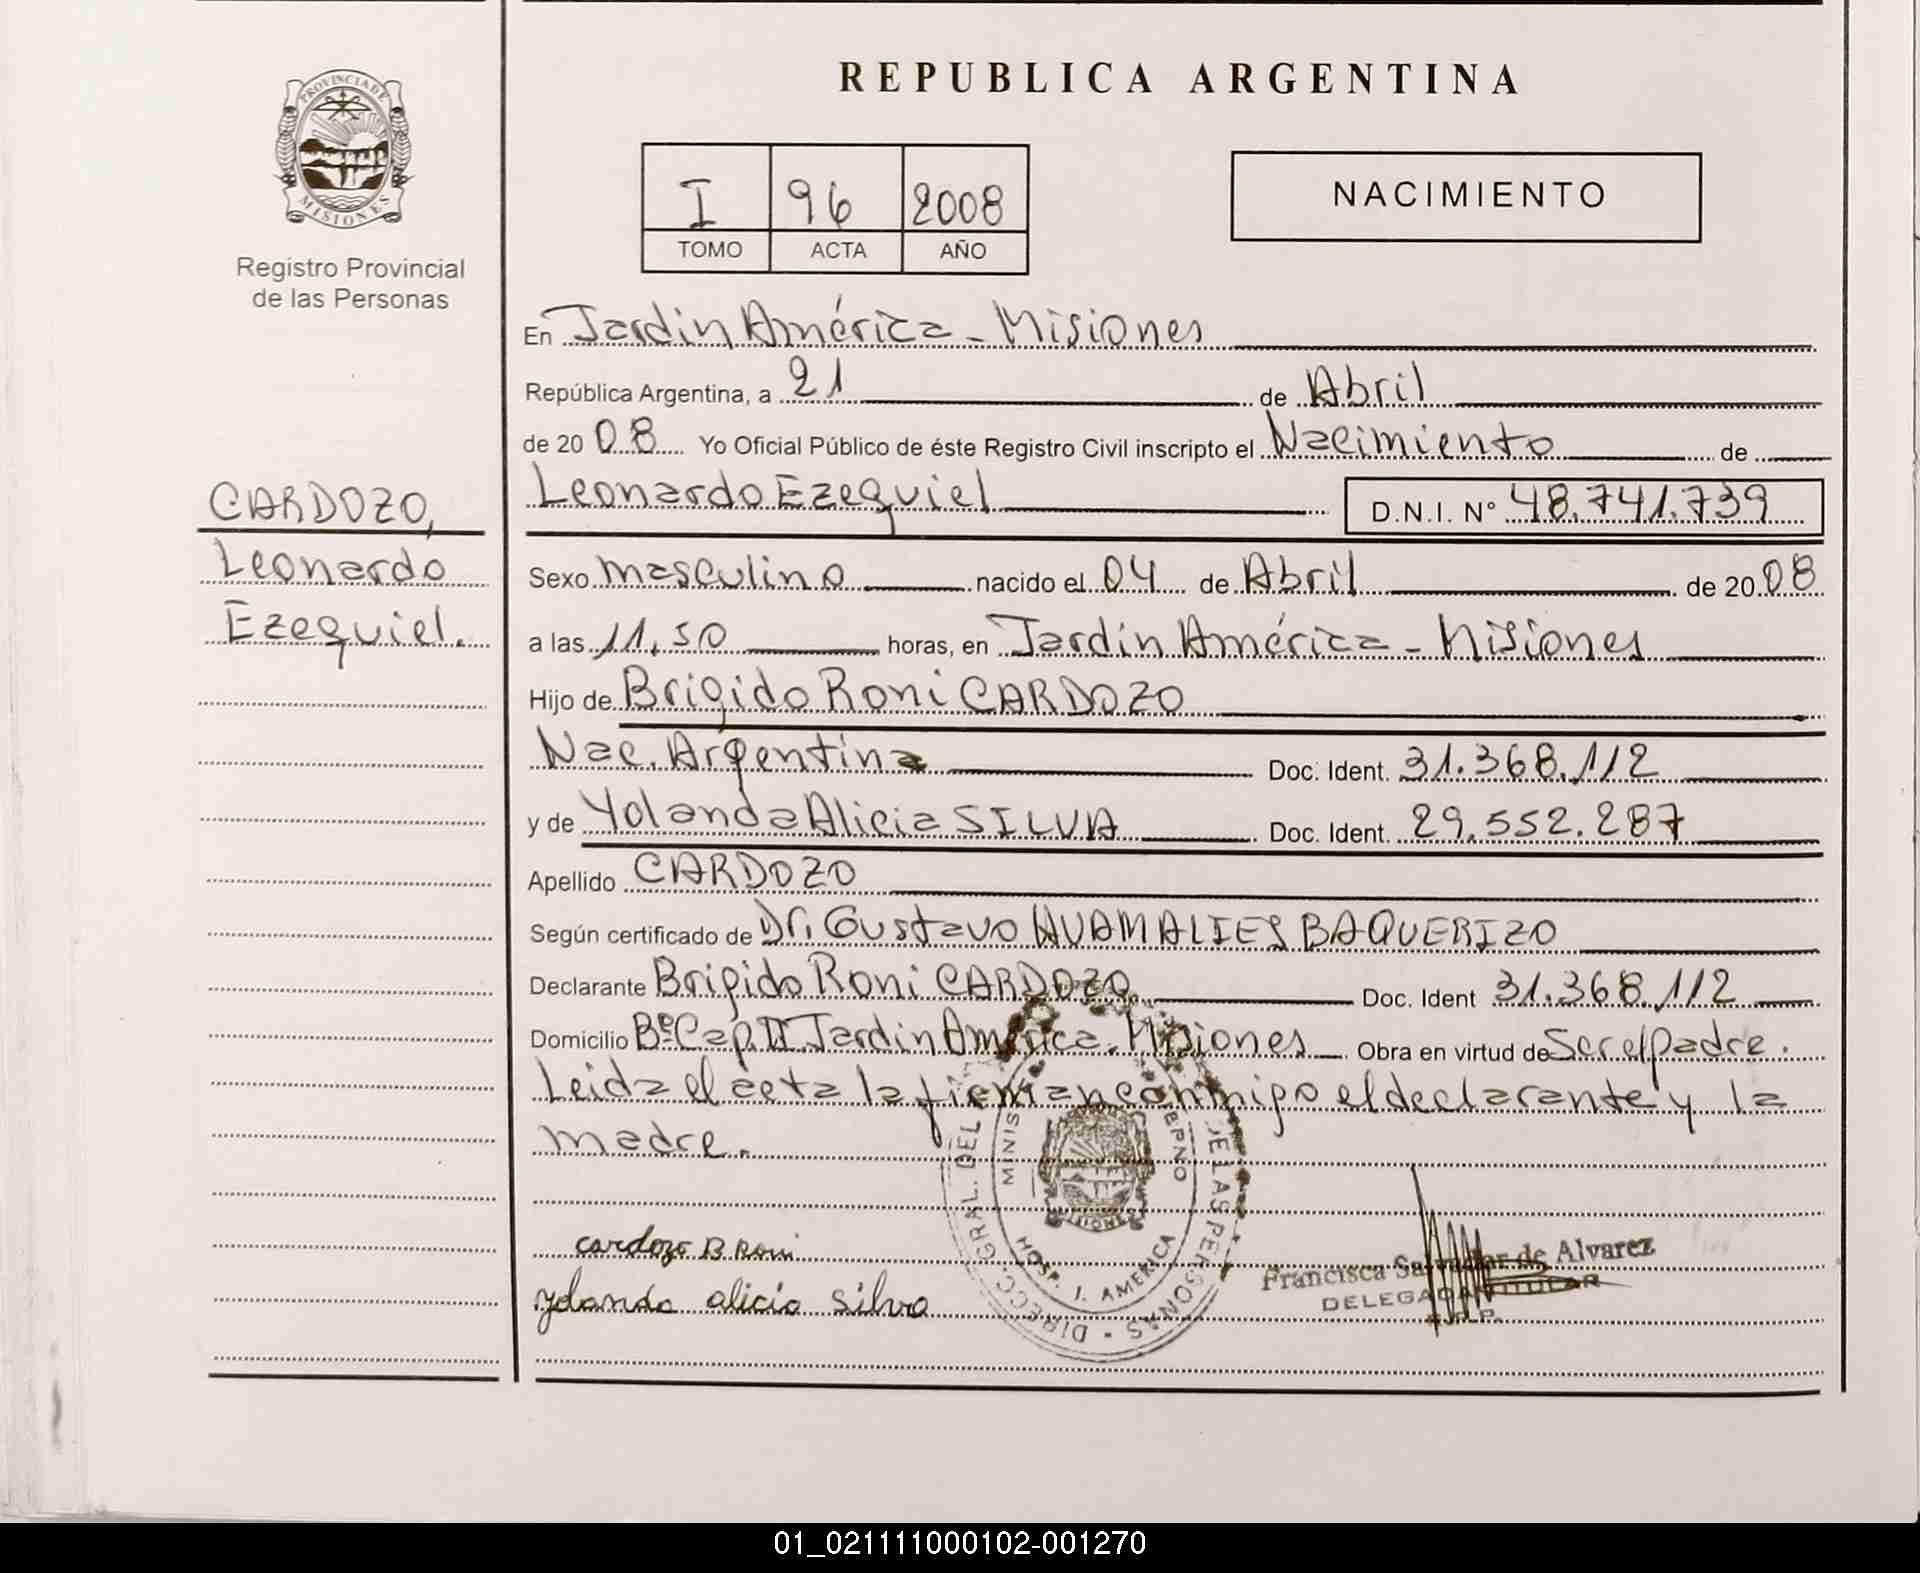 PROVINCIA DE
MISIONES
Registro Provincial
de las Personas
CARDOZO,
Leonardo
Ezequiel.
REPUBLICA ARGENTINA
I 96 2008
TOMO ACTA AÑO
NACIMIENTO
En Jardin América - Misiones
República Argentina, a 21 de Abril
de 2008 Yo Oficial Público de éste Registro Civil inscripto el Nacimiento de
Leonardo Ezequiel D.N.I. N° 48.741.739
Sexo masculino nacido el 04 de Abril de 2008
a las 11,50 horas, en Jardin América - Misiones
Hijo de Brigido Roni CARDOZO
Nac. Argentina Doc. Ident. 31.368.112
y de Yolanda Alicia SILVA Doc. Ident. 29.552.287
Apellido CARDOZO
Según certificado de Dr. Gustavo HUAMALIES BAQUERIZO
Declarante Brigido Roni CARDOZO Doc. Ident 31.368.112
Domicilio Bº Cap. II Jardin América. Misiones Obra en virtud de Ser el padre.
Leida el acta la firman conmigo el declarante y la
madre.
cardozo B Roni
yolanda alicia silva
DIRECC. GRAL. DEL DE LAS PERSONAS
MINIS
HOSP. J. AMERICA
Francisca Salvador de Alvarez
DELEGADA TITULAR
R.P.P.
01_021111000102-001270